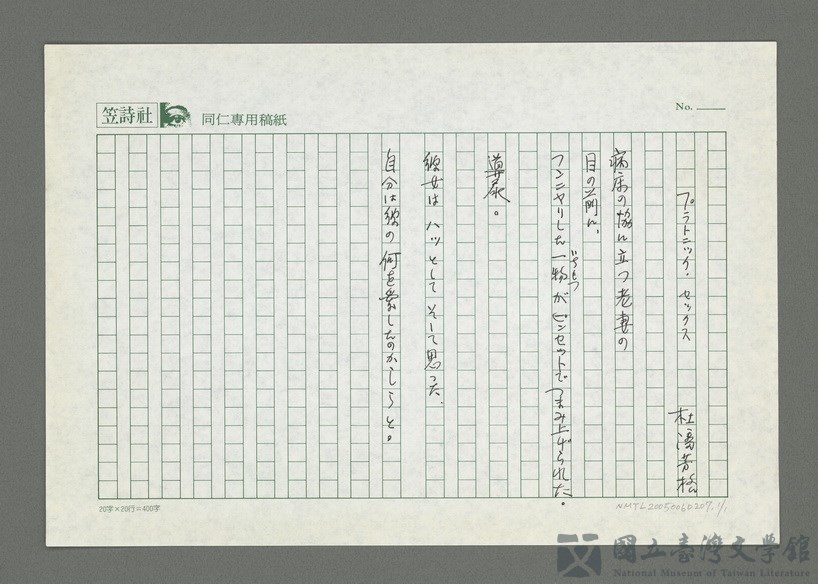 笠詩社
同仁專用稿紙
No.
プラトニック・セックス
杜潘芳格
病床の脇に立つ老妻の
目の前に、
フンニャリした一物がピンセットでつまみ上げられた。
いちもつ
導尿。
彼女は ハッとして そして思った、
自分は彼の 何を愛したのかしらと。
20字×20行=400字
NMTL20050060207.1/1
國立臺灣文學館
National Museum of Taiwan Literature